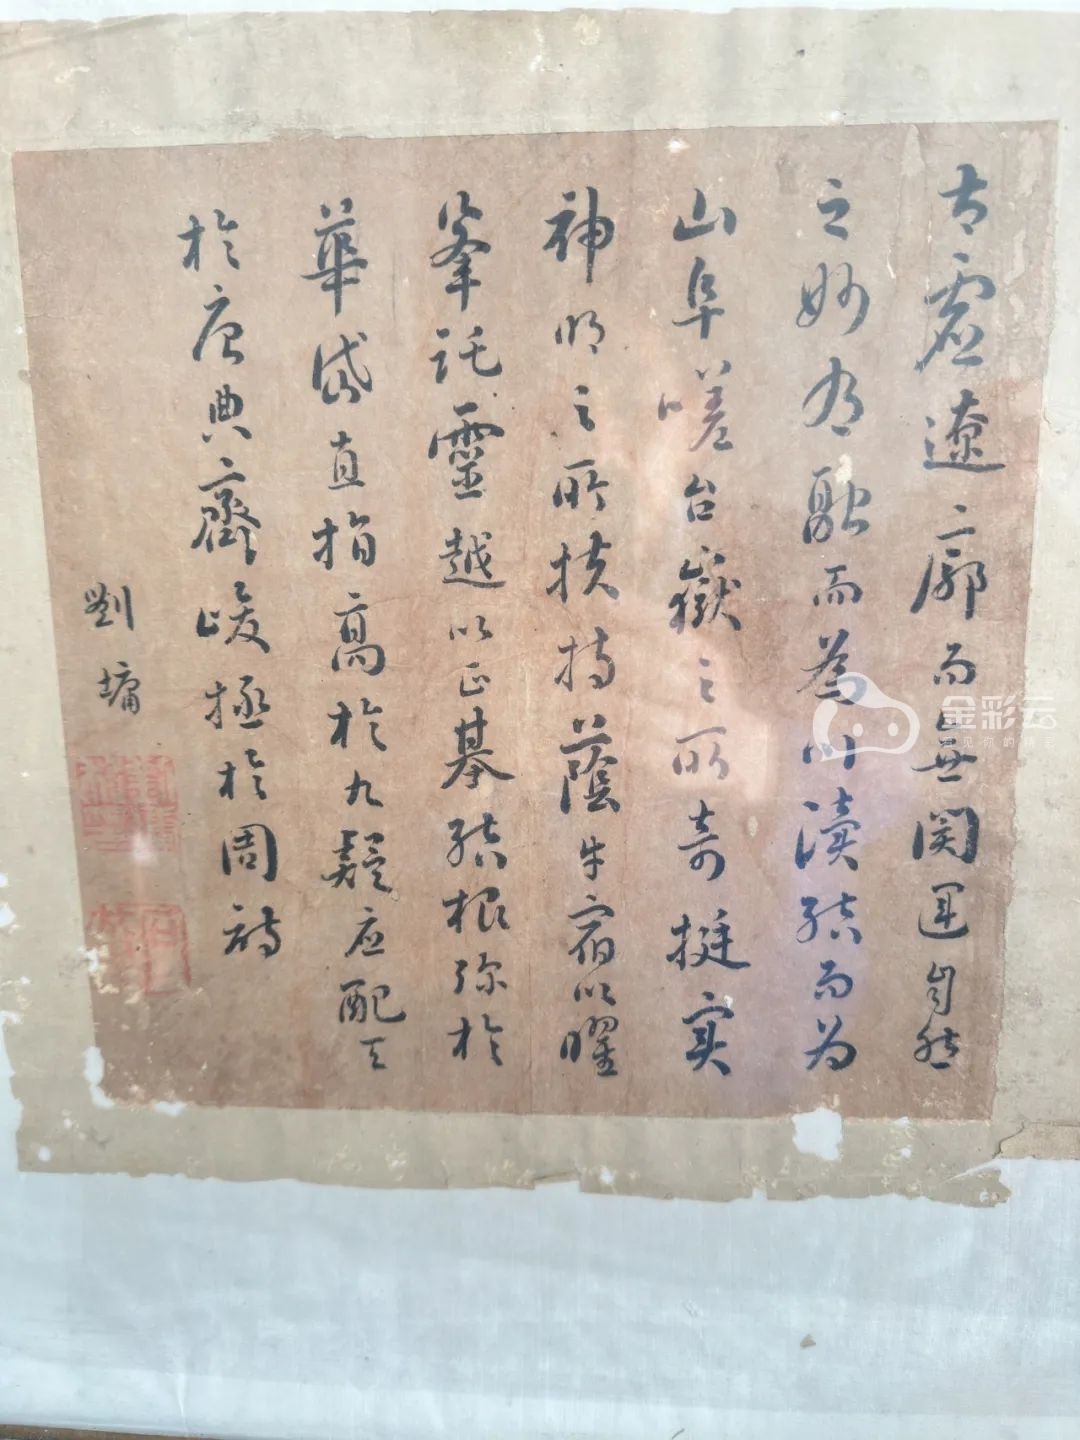 太虚遼廓而無閡運自然
之妙有融而為川瀆結而为
山阜嗟台嶽之所奇挺实
神明之所扶持蔭牛宿以曜
峯託靈越以正基結根弥於
華岱直指高於九疑应配天
於唐典齊峻極於周詩
劉墉
金彩云